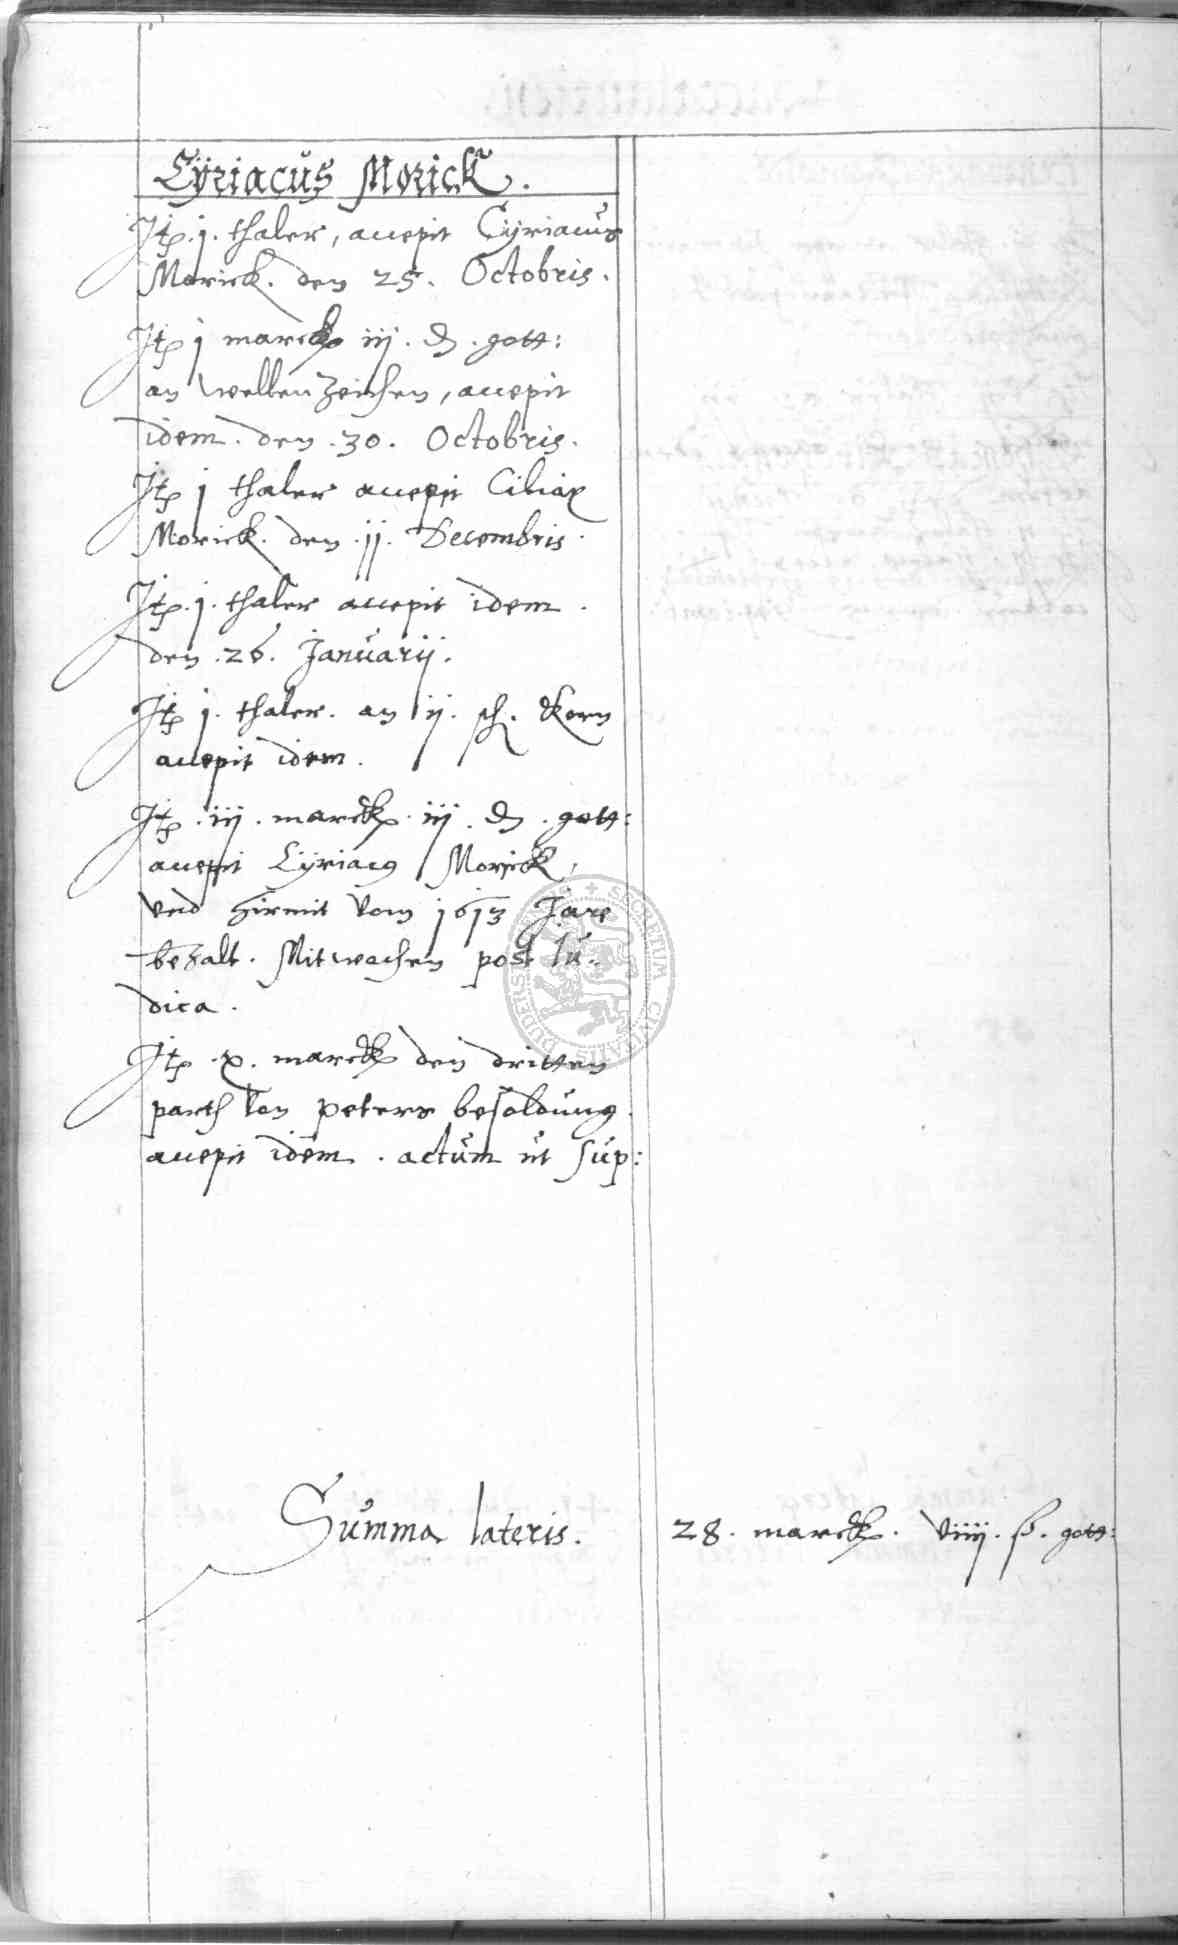 Cÿriacus Morick.
Jtp. j. thaler, accepit Cÿriacus
Morick. den 25. Octobris.
Jtp j marck iij. d. gott:
an wellenzeichen, accepit
idem. den. 30. Octobris.
Jtp j thaler accepit Ciliax
Morick. den. jj. Decembris.
Jtp. j. thaler accepit idem.
den. 26. Januarij.
Jtp j. thaler. an ij. sch. Korn
accepit idem.
Jtp. iij. marck. iij. d. gott:
accepit Cÿriacq Morick,
vnd hirmit vom 1613 Jare
bezalt. Mitwochen post Ju-
dica.
Jtp. x. marck den dritten
parth von peters besoldung.
accepit idem. actum ut sup:
Summa lateris.
28. marck. viiij. ß. gott:
SECRETUM CIVITATIS